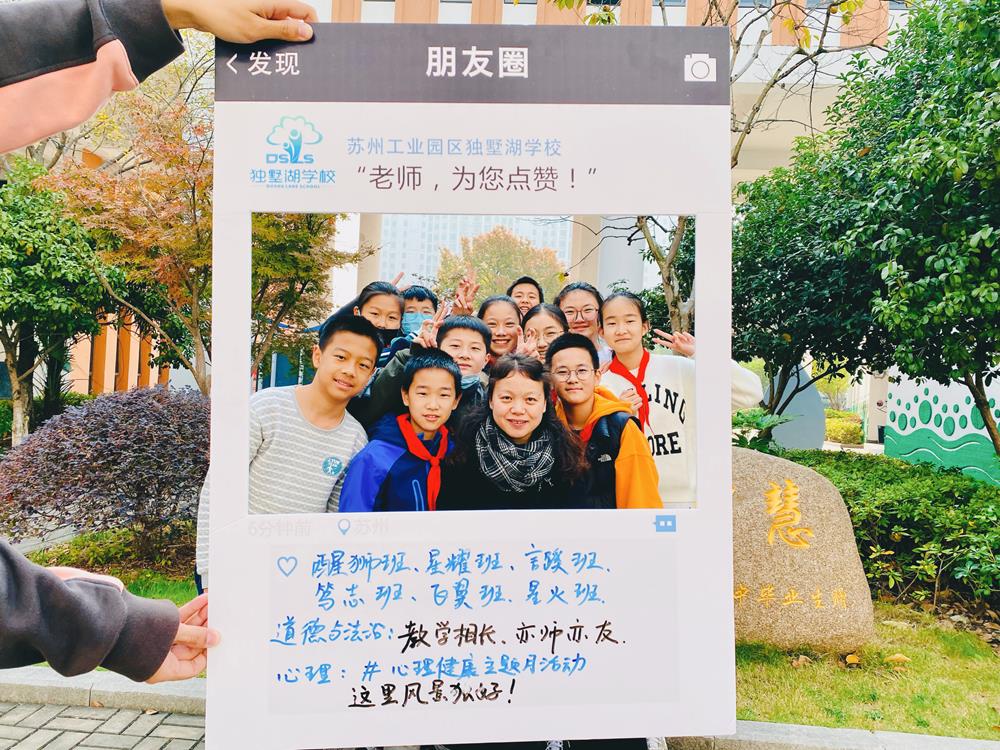 < 发现
朋友圈
DSLS
独墅湖学校
DUSHU LAKE SCHOOL
苏州工业园区独墅湖学校
“老师，为您点赞！”
6分钟前
苏州
醒狮班、星耀班、言骏班、
笃志班、飞翼班、星火班.
道德与法治: 教学相长、亦师亦友.
心理: #心理健康主题月活动
这里风景独好!
LING
ORE
慧
毕业生赠